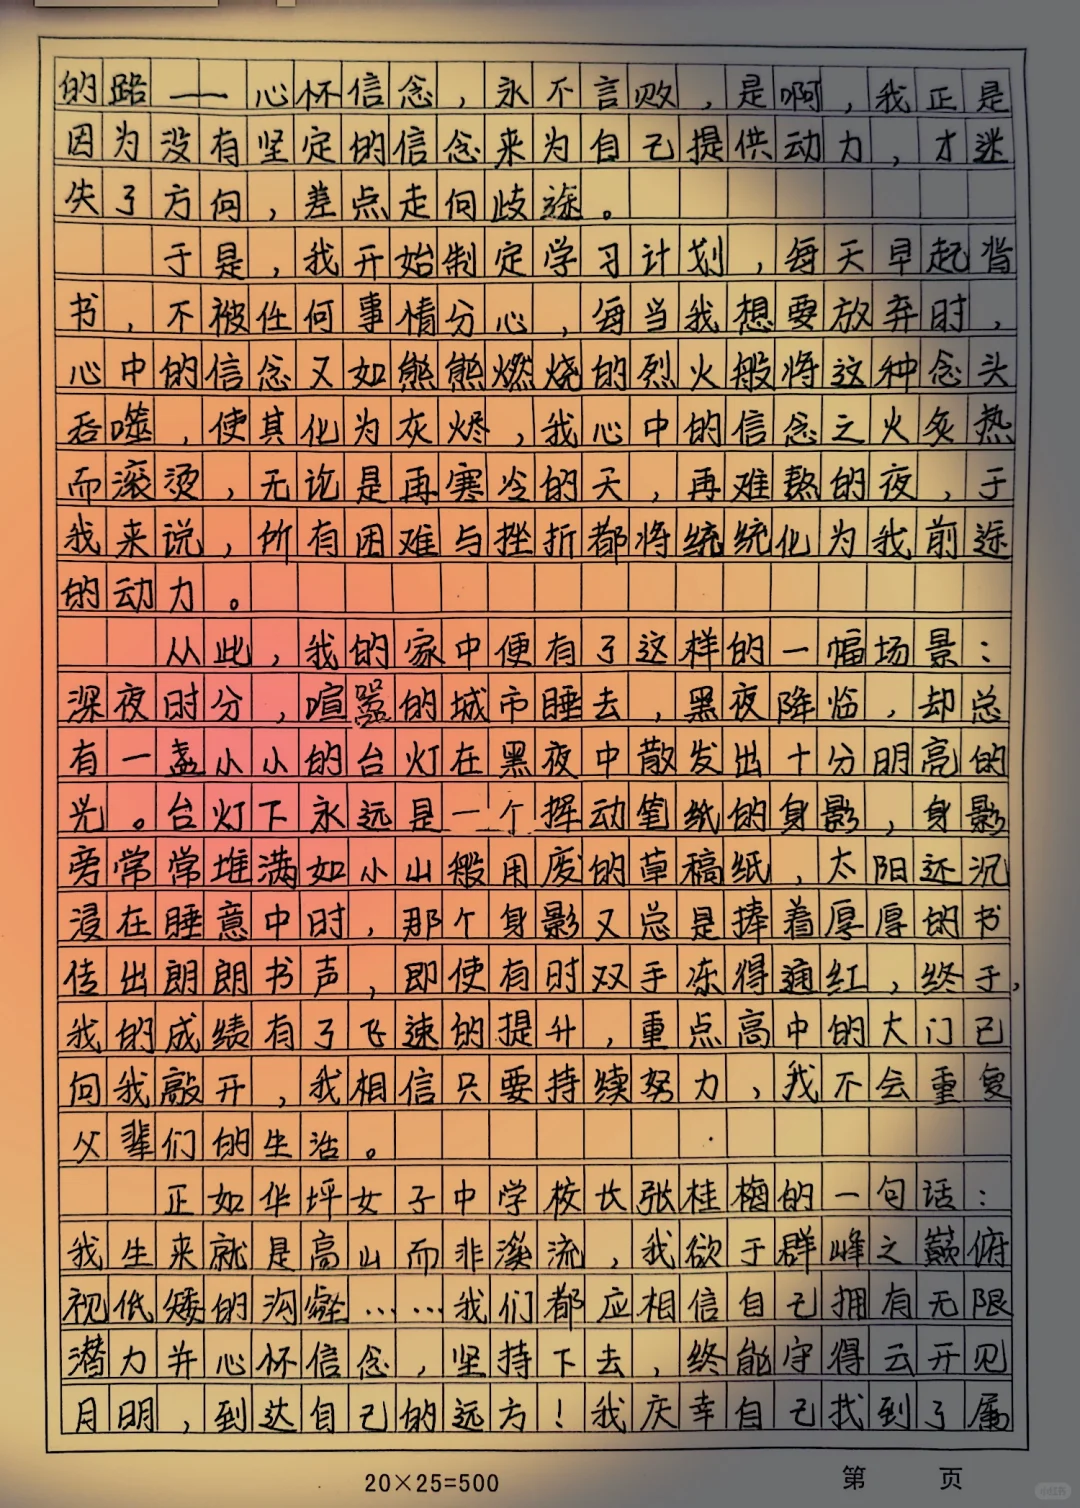 的路——心怀信念，永不言败，是啊，我正是
因为没有坚定的信念来为自己提供动力，才迷
失了方向，差点走向歧途。
于是，我开始制定学习计划，每天早起背
书，不被任何事情分心，每当我想要放弃时，
心中的信念又如熊熊燃烧的烈火般将这种念头
吞噬，使其化为灰烬，我心中的信念之火炙热
而滚烫，无论是再寒冷的天，再难熬的夜，于
我来说，所有困难与挫折都将统统化为我前途
的动力。
从此，我的家中便有了这样的一幅场景：
深夜时分，喧嚣的城市睡去，黑夜降临，却总
有一盏小小的台灯在黑夜中散发出十分明亮的
光。台灯下永远是一个挥动笔纸的身影，身影
旁常常堆满如小山般用废的草稿纸，太阳还沉
浸在睡意中时，那个身影又总是捧着厚厚的书
传出朗朗书声，即使有时双手冻得通红，终于，
我的成绩有了飞速的提升，重点高中的大门已
向我敲开，我相信只要持续努力，我不会重复
父辈们的生活。
正如华坪女子中学校长张桂梅的一句话：
我生来就是高山而非溪流，我欲于群峰之巅俯
视低矮的沟壑……我们都应相信自己拥有无限
潜力并心怀信念，坚持下去，终能守得云开见
月明，到达自己的远方！我庆幸自己找到了属
20×25=500
第 页